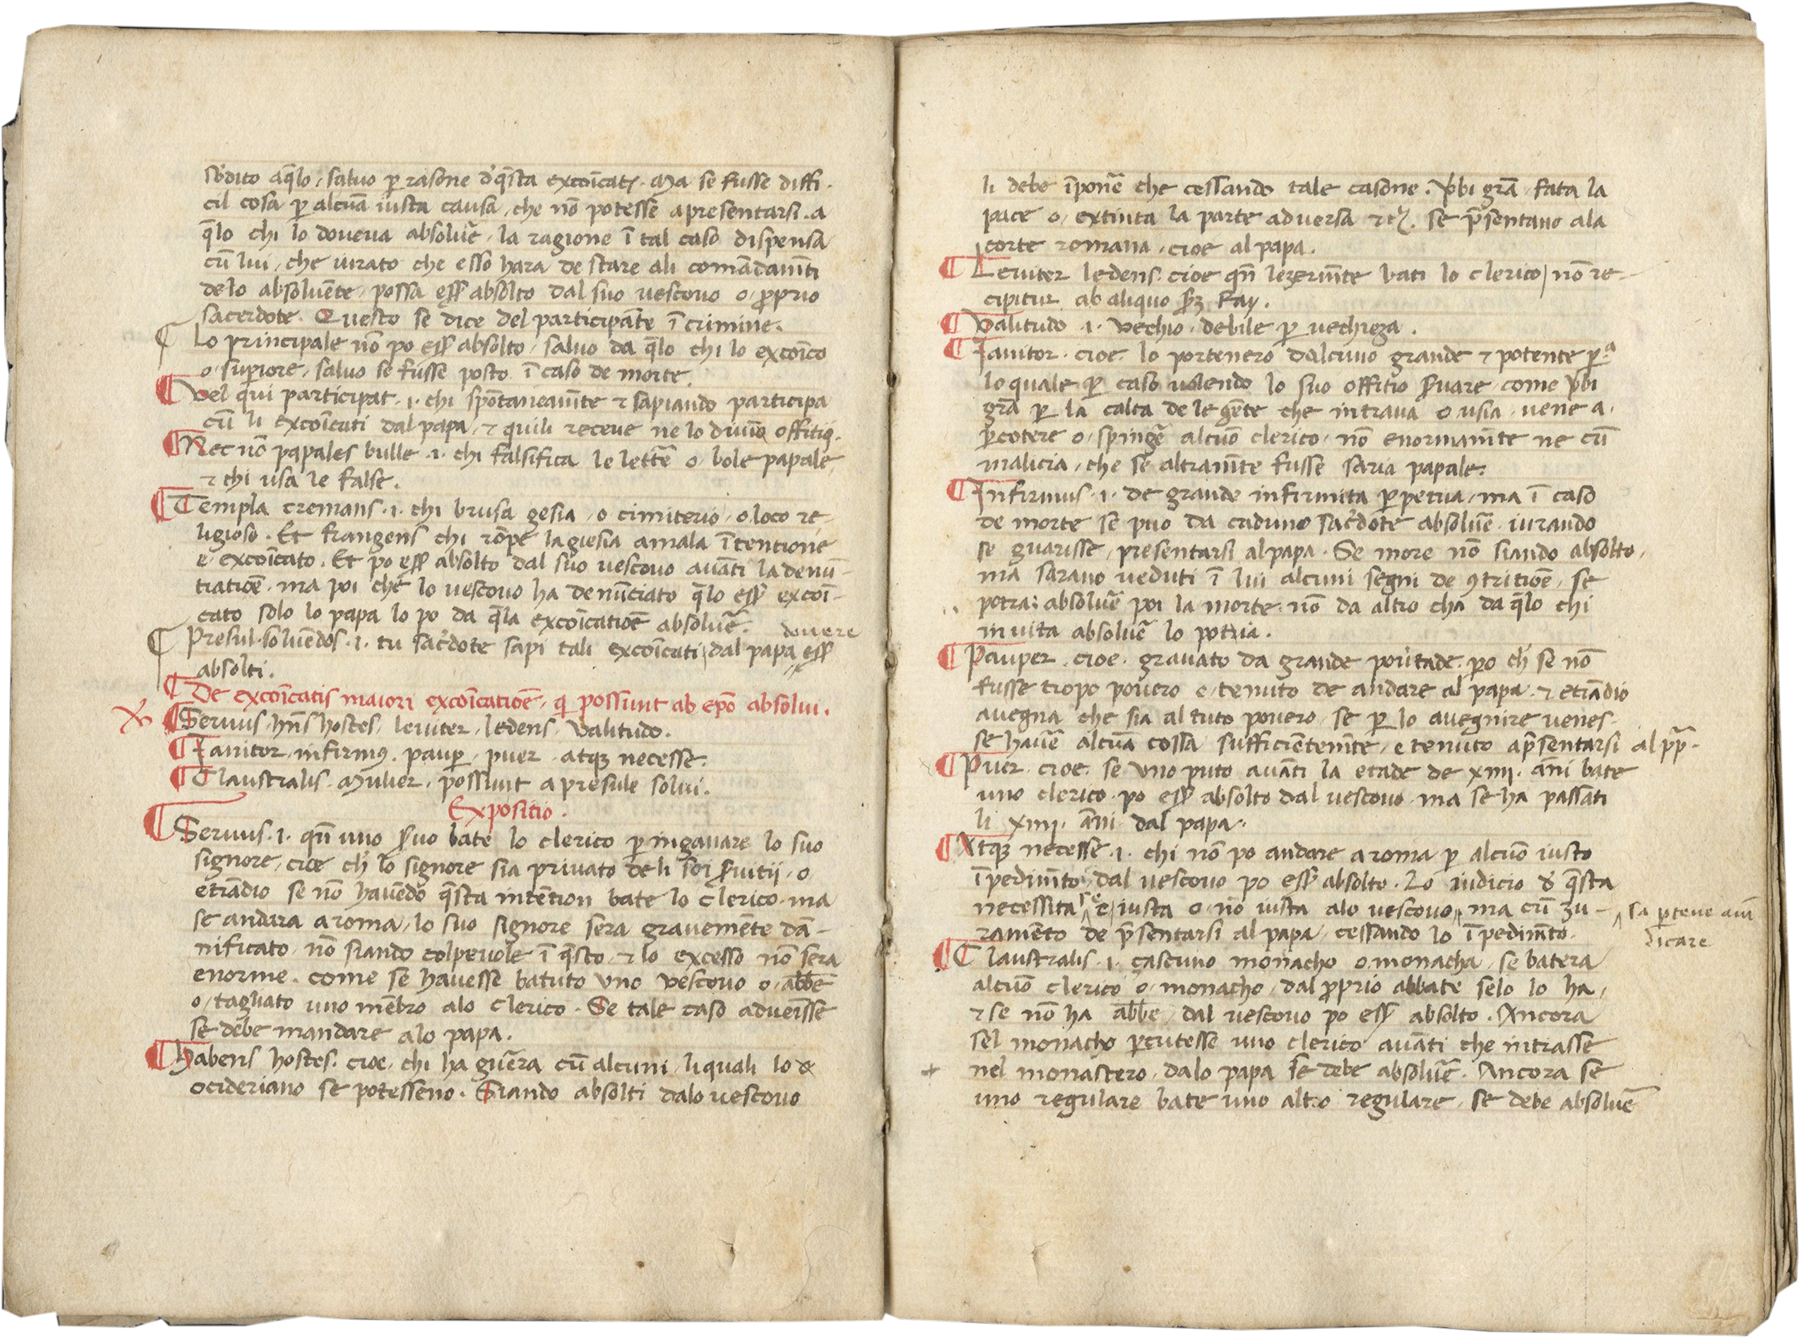 sb̄dito aq̄lo, saluo ꝑ rasone d' q̄sta excoīcatꝭ. Ma se fusse diffi-
cil cosa ꝑ alcūa iusta causa, che nō potesse apresentarsi. a
q̄lo chi lo doueua absoluē, la ragione ī tal caso dispensa
cū lui, che iurato che esso hara de stare ali comādamīti
delo absoluēte, possa ess̄ absolto dal suo vescouo o, ꝓprio
sacerdote. Questo se dice del participāte ī crimine.
Lo principale nō po ess̄ absolto, saluo da q̄lo chi lo excoīco
o, suꝑiore, saluo se fusse posto ī caso de morte.
Vel qui participat .i. chi spōtaneamīte ⁊ sapiando participa
cū li excoīcati dal papa, ⁊ quili receue ne lo diuīo offitio.
Nec nō papales bulle .i. chi falsifica le lettē o, bole papale,
⁊ chi usa le false.
Templa cremans .i. chi brusa gesia, o cimiterio, o loco re-
ligioso. Et frangens chi rōpe la giesia a mala ītentione
e, excoīcato. Et po ess̄ absolto dal suo vescouo auāti la denū-
tiatiōe, ma poi che lo vescouo ha denūciato q̄lo ess̄ excoī-
cato solo lo papa lo po da q̄la excoīcatiōe absoluē.
Presul soluēdos .i. tu sac̄dote sapi tali excoīcati dal papa douere ess̄
absolti.
De excoīcatis maiori excoīcatiōe, qi possunt ab epō absolui.
Seruus, hn̄s hostes, leuiter, ledens, valitudo.
Ianitor, infirmꝯ, pauꝑ, puer, atqꝫ necesse.
Claustralis, Mulier, possunt a presule solui.
Expositio.
Seruus .i. qn̄ uno ẜuo bate lo clerico ꝑ ingauare lo suo
signore, cioe ch' lo signore sia priuato de li soi ẜuitii, o
etiādio se nō hauēdo q̄sta intētion bate lo clerico. ma
se andara a roma, lo suo signore sera grauemēte dā-
nificato, nō siando colpeuole ī q̄sto, ⁊ lo excesso nō sera
enorme. come se hauesse batuto uno vescouo o, abbē
o, tagliato uno mēbro alo clerico. Se tale caso aduenisse
se debe mandare alo papa.
habens hostes. cioe, chi ha guēra cū alcuni, li quali lo
ocideriano se potesseno. Siando absolti dalo vescouo
li debe īponē che cessando tale casone. Vbi grā, fata la
pace o, extinta la parte aduersa ⁊cꝭ. se p̄sentano ala
corte romana, cioe al papa.
Leuiter ledens. cioe qn̄ lezermīte bati lo clerico, nō re-
cipitur ab aliquo
Valitudo .i. vechio. debile ꝑ uechieza.
Ianitor. cioe. lo portenero dalcuno grande ⁊ potente
lo quale ꝑ caso uolendo lo suo offitio ẜuare, come Vbi
grā ꝑ la calta de le gēte che intraua o, usia, uene a,
ꝑcotere o, spingē alcūo clerico, nō enormamīte ne cū
malicia, che se altramīte fusse saria papale.
Infirmus .i. de grande infirmita ꝑpetua, ma ī caso
de morte se puo da caduno sac̄dote absoluē, iurando
se guarisse, presentarsi al papa. Se more nō siando absolto,
ma sarano ueduti ī lui alcuni segni de ꝯtritiōe, se
potra absoluē poi la morte. nō da altro cha da q̄lo chi
in uita absoluē lo potria.
Pauper. cioe. grauato da grande pou'tade, ꝑo ch' se nō
fusse tropo pouero e, tenuto de andare al papa. ⁊ etiādio
auegna che sia al tuto pouero, se ꝑ lo auegnire uenes-
se hauē alcūa cossa sufficiētemīte, e tenuto ap̄sentarsi al pp̄.
Puer. cioe. se uno puto auāti la etade de xiiij. āni bate
uno clerico po ess̄ absolto dal vescouo. ma se ha passati
li xiiij. āni dal papa.
Atqꝫ necesse .i. chi nō po andare a roma ꝑ alcūo iusto
īpedimīto, dal vescouo po ess̄ absolto. Lo iudicio d' q̄sta
necessita se e, iusta o, nō iusta alo vescouo, ma cū zu-
sa ꝑtene
dicare
ramēto de p̄sentarsi al papa, cessando lo īpedimīto.
Claustralis .i. cascuno monacho o, monacha, se batera
alcūo clerico o, monacho, dal ꝓprio abbate selo lo ha,
⁊ se nō ha abbē, dal vescouo po ess̄ absolto. Ancora
sel monacho ꝑcutesse uno clerico auāti che intrasse
nel monastero, dalo papa se debe absoluē. Ancora se
uno regulare bate uno altro regulare, se debe absoluē